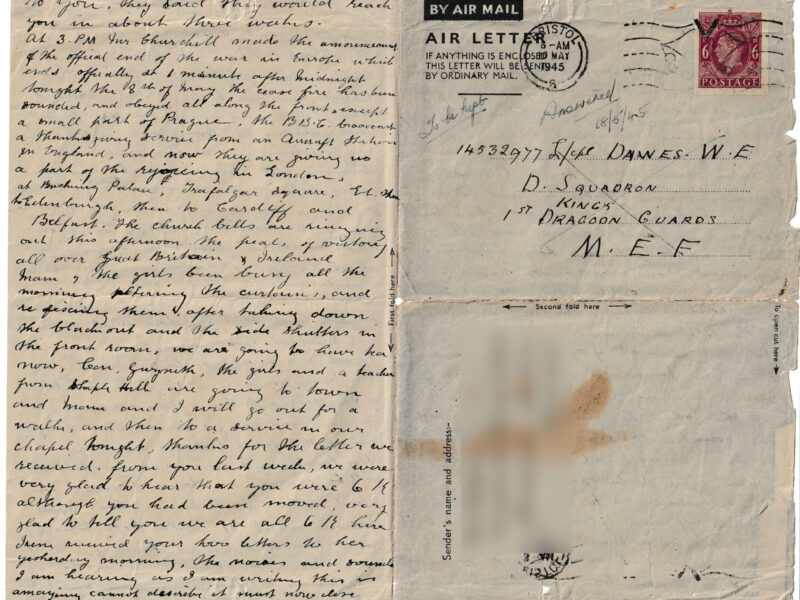 to you, they said they would reach
you in about three weeks.
At 3. P.M Mr Churchill made the announcement
of the official end of the war in Europe which
ends officially at 1 minute after midnight
tonight the 8th of May the cease fire has been
sounded, and obeyed all along the front, except
a small part of Prague, the B.B.C. broadcast
a thanksgiving service from an Aircraft Station
in England, and now they are giving us
a part of the rejoicing in London,
at Buckingham Palace, Trafalgar Square, Et then
to Edinburgh, then to Cardiff and
Belfast. The church bells are ringing
out this afternoon the peals of victory
all over Great Britain & Ireland
Mam & the girls been busy all the
morning altering the curtains, and
re fixing them, after taking down
the blackout and the side shutters in
the front room, we are going to have tea
now, Gwyneth, the girls and a teacher
from Hill are going to town
and Mam and I will go out for a
walk, and then to a service in our
chapel tonight, thanks for the letter we
received. from you last week, we were
very glad to hear that you were O K
although you had been moved, very
glad to tell you we are all O K here
Irene received your two letters to her
yesterday morning, the noises and sounds
I am hearing as I am writing this is
amazing cannot describe it must now close
BY AIR MAIL
AIR LETTER
IF ANYTHING IS ENCLOSED
THIS LETTER WILL BE SENT
BY ORDINARY MAIL.
BRISTOL
8-AM
MAY
1945
6 6
POSTAGE
To be kept
Answered
18/5/45
14532977 L/cpl DAWES. W. E
D. SQUADRON
KINGS
1ST DRAGOON GUARDS
M. E. F
First fold here
Second fold here
To open cut here
Sender's name and address:-